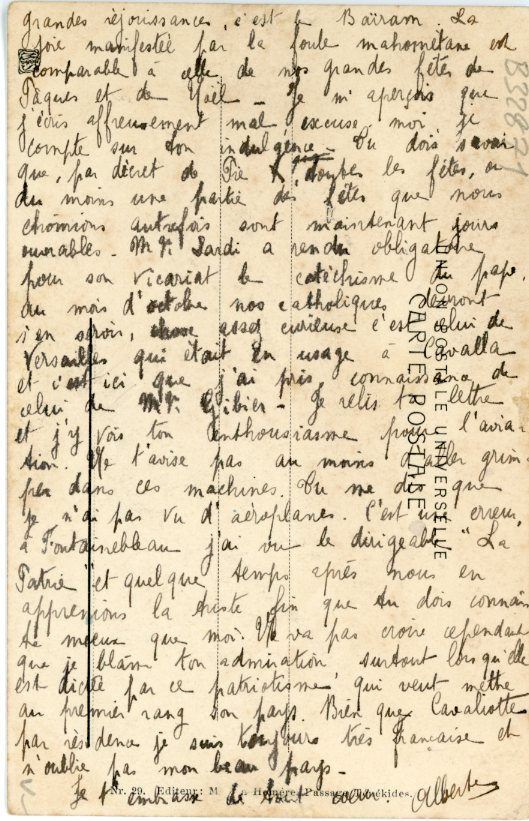 grandes réjouissances, c'est le Baïram. La
joie manifestée par la foule mahométane est
comparable à celle de nos grandes fêtes de
Pâques et de Noël - Je m'aperçois que
j'écris affreusement mal excuse moi je
compte sur ton indulgence - Tu dois savoir
que, par décret de Pie X toutes les fêtes, ou
du moins une partie des fêtes que nous
chomions autrefois sont maintenant jours
ouvrables - Mgr Sardi a rendu obligatoire
pour son vicariat le catéchisme du pape,
au mois d'octobre nos catholiques devront
s'en servir, chose assez curieuse c'est celui de
Versailles qui était en usage à Cavalla
et c'est ici que j'ai pris connaissance de
celui de Mgr Gibier - Je relis ta lettre
et j'y vois ton enthousiasme pour l'avia-
tion. Ne t'avise pas au moins d'aller grim-
per dans ces machines. Tu me dis que
je n'ai pas vu d'aéroplanes. C'est une erreur,
à Fontainebleau j'ai vu le dirigeable "La
Patrie" et quelque temps après nous en
apprenions la triste fin que tu dois connaî
tre mieux que moi. Ne va pas croire cependant
que je blâme ton admiration, surtout lorsqu'elle
est dictée par ce patriotisme, qui veut mettre
au premier rang son pays. Bien que Cavaliotte
par résidence je suis toujours très française et
n'oublie pas mon beau pays -
Je t'embrasse de tout coeur. Alberte
Nr. 29. Editeur: M Homère, Passage
UNION POSTALE UNIVERSELLE
CARTE POSTALE